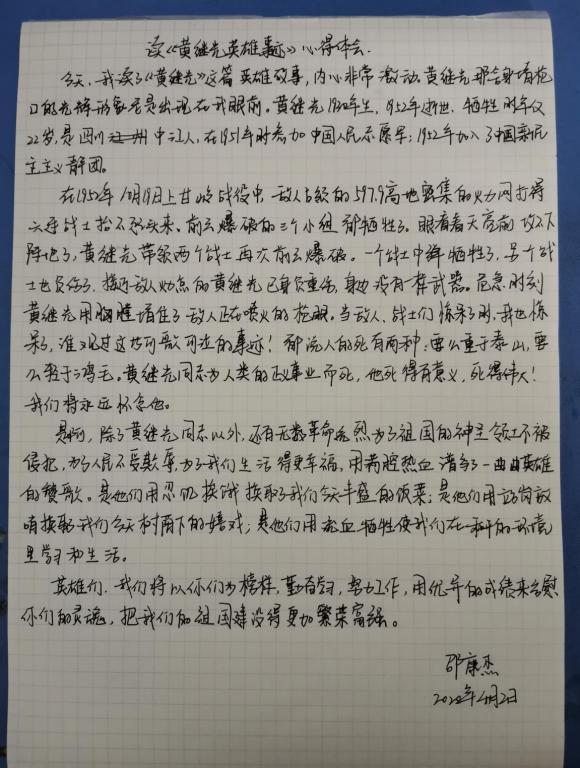 读《黄继光英雄事迹》心得体会.
今天,我读了《黄继光》这篇英雄故事,内心非常激动.黄继光那舍身堵枪
口的光辉形象老是出现在我眼前。黄继光1930年生,1952年逝世.牺牲时年仅
22岁,是四川 中江人,在1951年时参加中国人民志愿军;1952年加入了中国新民
主主义青团。
在1952年10月19日上甘岭战役中,敌人占领的597.9高地密集的火力网打得
六连战士抬不起头来.前去爆破的三个小组都牺牲了。眼看着天亮前攻不下
阵地了,黄继光带领两个战士再次前去爆破。一个战士中弹牺牲了,另个战
士也负伤了,接近敌人火力点的黄继光已身负重伤,身边没有一样武器。危急时刻
黄继光用胸膛堵住了敌人正在喷火的枪眼。当敌人、战士们惊呆了时,我也惊
呆了,谁见过这些可歌可泣的事迹!都说人的死有两种:要么重于泰山,要
么轻于鸿毛。黄继光同志为人类的正义事业而死,他死得有意义,死得伟大!
我们将永远怀念他。
是啊,除了黄继光同志以外,还有无数革命先烈为了祖国的神圣领土不被
侵犯,为了人民不受欺辱,为了我们生活得更幸福,用满腔热血谱写了一曲曲英雄
的赞歌。是他们用忍饥挨饿换取了我们今天丰盛的饭菜;是他们用站岗放
哨换取我们今天树荫下的嬉戏;是他们用流血牺牲使我们在和平的环境
里学习和生活。
英雄们,我们将以你们为榜样,勤奋学习,努力工作,用优异的成绩来告慰
你们的灵魂,把我们的祖国建设得更加繁荣富强。
邵康杰
2022年4月2日